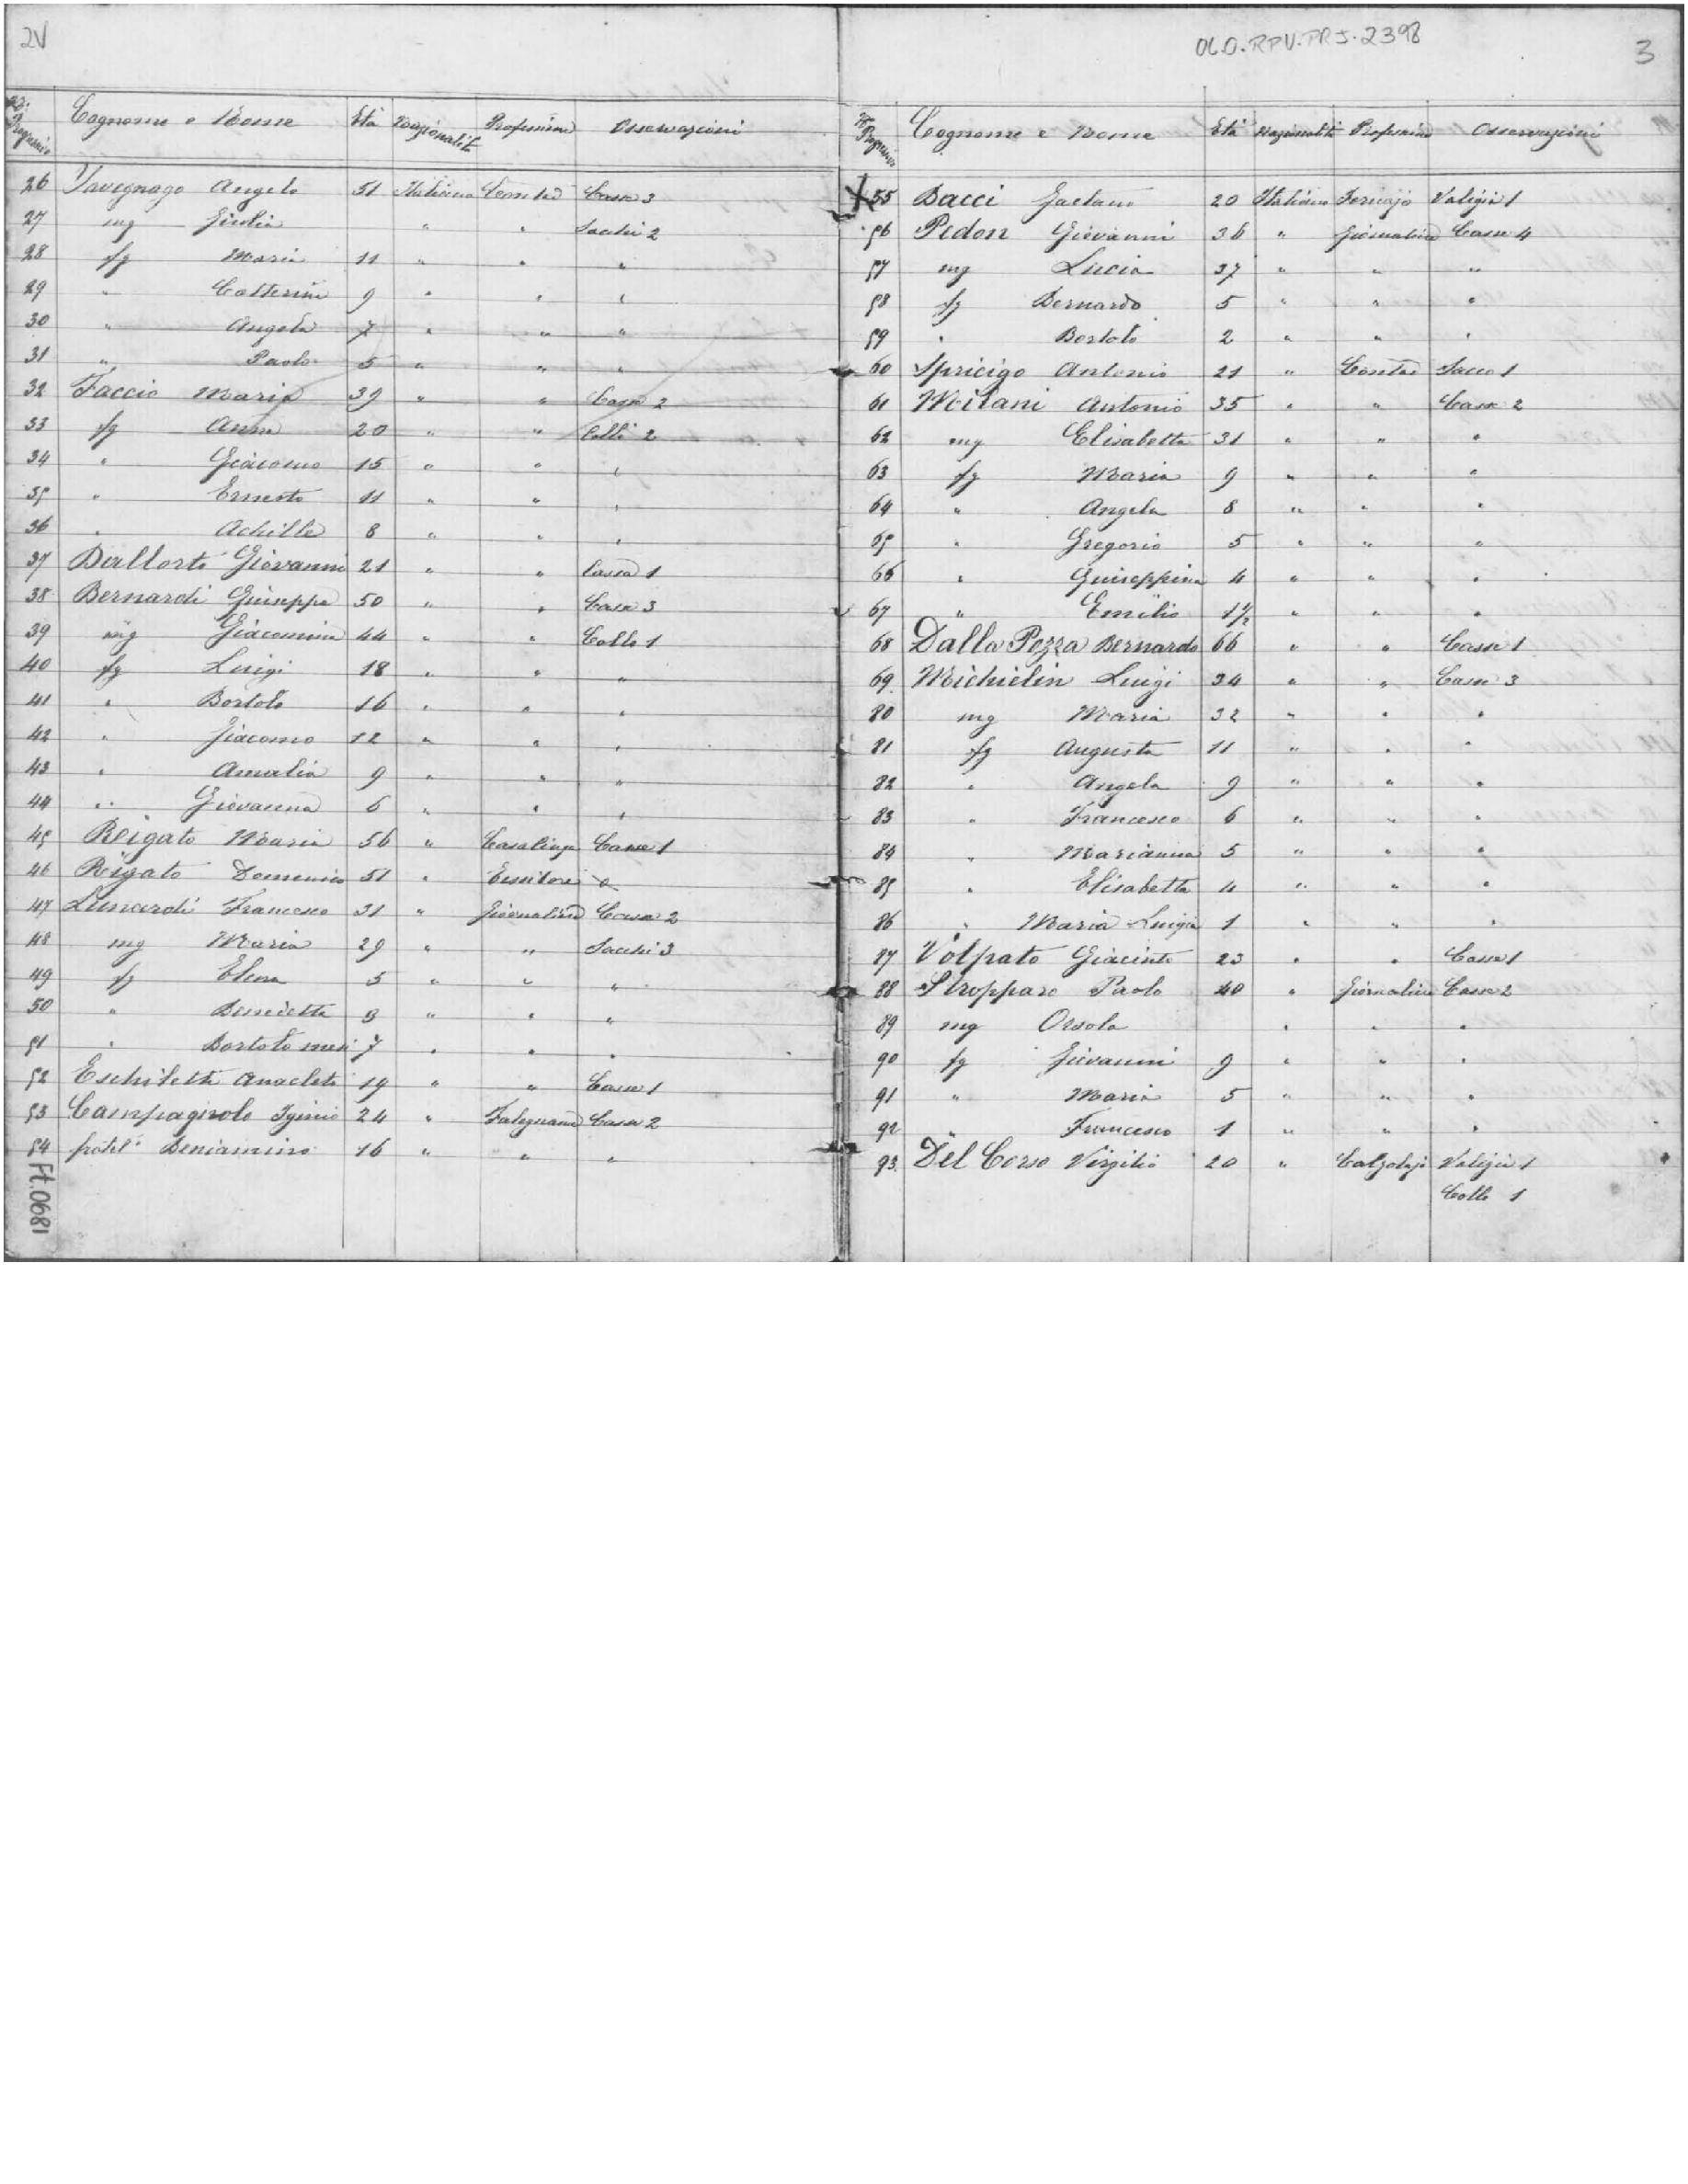 2V
No. Progressivo Cognome e Nome Età Nazionalità Professione Osservazioni
26 Tavignago Angelo 51 Italiana Contad Casse 3
27 mg Giulia " " Sacchi 2
28 fg Maria 11 " " "
29 " Catterina 9 " " "
30 " Angela 7 " " "
31 " Paolo 5 " " "
32 Faccio Maria 39 " " Casse 2
33 fg Anna 20 " " Colli 2
34 " Giacomo 15 " " "
35 " Ernesto 11 " " "
36 " Achille 8 " " "
37 Dallorto Giovanni 21 " " Cassa 1
38 Bernardi Guiseppe 50 " " Casse 3
39 mg Giacomina 44 " " Collo 1
40 fg Luigi 18 " " "
41 " Bortolo 16 " " "
42 " Giacomo 12 " " "
43 " Amalia 9 " " "
44 " Giovanna 6 " " "
45 Rigato Maria 56 " Casalinga Casse 1
46 Rigato Domenico 51 "
47 Lunardi Francesco 31 " Giornaliero Casse 2
48 mg Maria 29 " " Sacchi 3
49 fg Elena 5 " " "
50 " Benedetta 3 " " "
51 " Bortolo mesi 7 " " "
52 Eschiletti Anacleto 19 " " Casse 1
53 Campagnolo Iginio 24 " Falegname Casse 2
54 fratel° Beniamino 16 " " "
Ft.0681
OLO.RPV.PRJ.2398
3
No. Progressivo Cognome e Nome Età Nazionalità Professione Osservazioni
X 55 Bacci Gaetano 20 Italiana Valigia 1
56 Pedon Giovanni 36 " Giornaliero Casse 4
57 mg Lucia 37 " " "
58 fg Bernardo 5 " " "
59 " Bortolo 2 " " "
60 Spricigo Antonio 21 " Contad Sacco 1
61 Milani Antonio 35 " " Casse 2
62 mg Elisabetta 31 " " "
63 fg Maria 9 " " "
64 " Angela 8 " " "
65 " Gregorio 5 " " "
66 " Guiseppina 4 " " "
67 " Emilio 1 1/2 " " "
68 Dalla Pozza Bernardo 66 " " Casse 1
69. Michielin Luigi 34 " " Casse 3
80 mg Maria 32 " " "
81 fg Augusta 11 " " "
82 " Angela 9 " " "
83 " Francesco 6 " " "
84 " Marianna 5 " " "
85 " Elisabetta 4 " " "
86 " Maria Luigia 1 " " "
87 Volpato Giacinto 23 " " Casse 1
88 Stropparo Paolo 40 " Giornaliero Casse 2
89 mg Orsola " " "
90 fg Giovanni 9 " " "
91 " Maria 5 " " "
92 " Francesco 1 " " "
93. Del Corso Virgilio 20 " Calzolajo Valigia 1
Collo 1